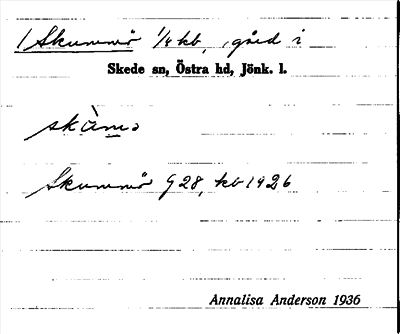 1 Skummö 1/4 kb, gård i
Skede sn, Östra hd, Jönk. l.
skàmə
Skummö G28, kb 1926
Annalisa Anderson 1936